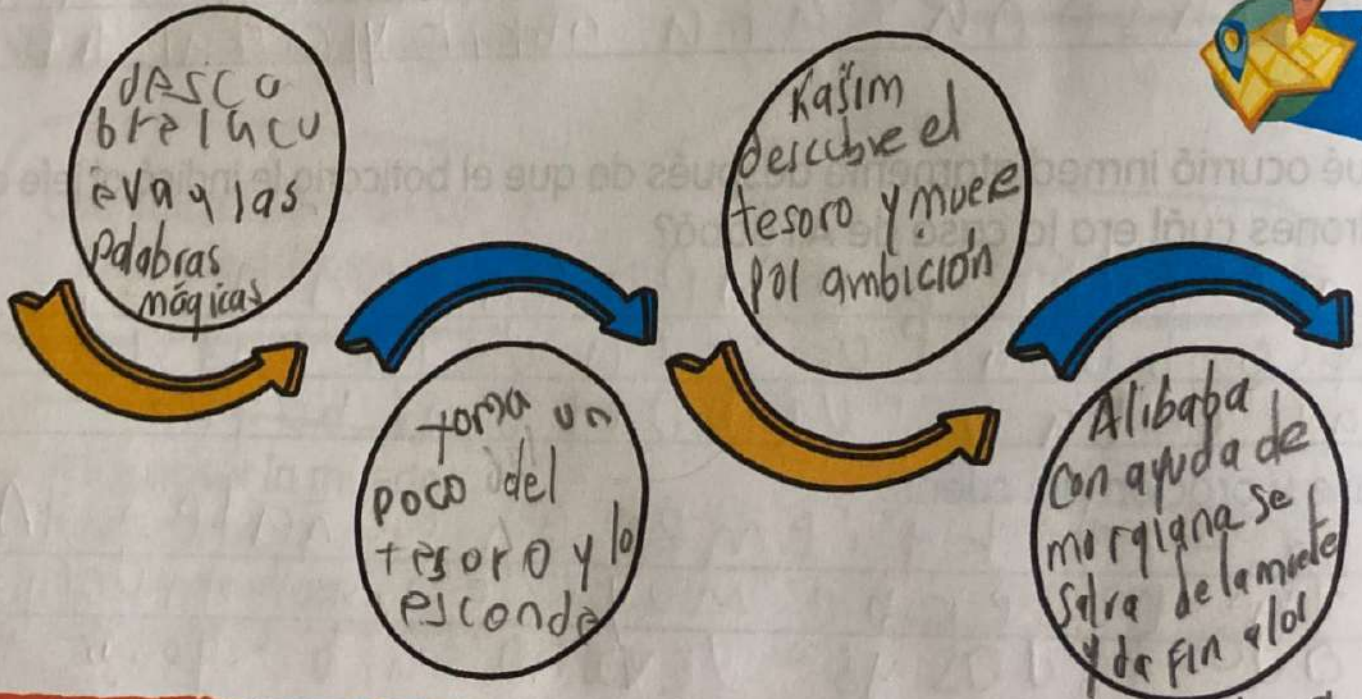 desco
bre la cu
eva y las
palabras
mágicas
toma un
poco del
tesoro y lo
esconde
Kasim
descubre el
tesoro y muere
por ambición
Alibaba
con ayuda de
morgiana se
salva de la muerte
y da fin a los